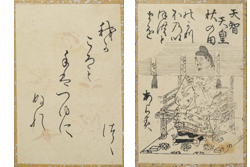 天智
天皇
秋の田
のかり
ほのい
ほのと
まを
あらみ
わか
ころも
手はつゆに
ぬれ
つゝ